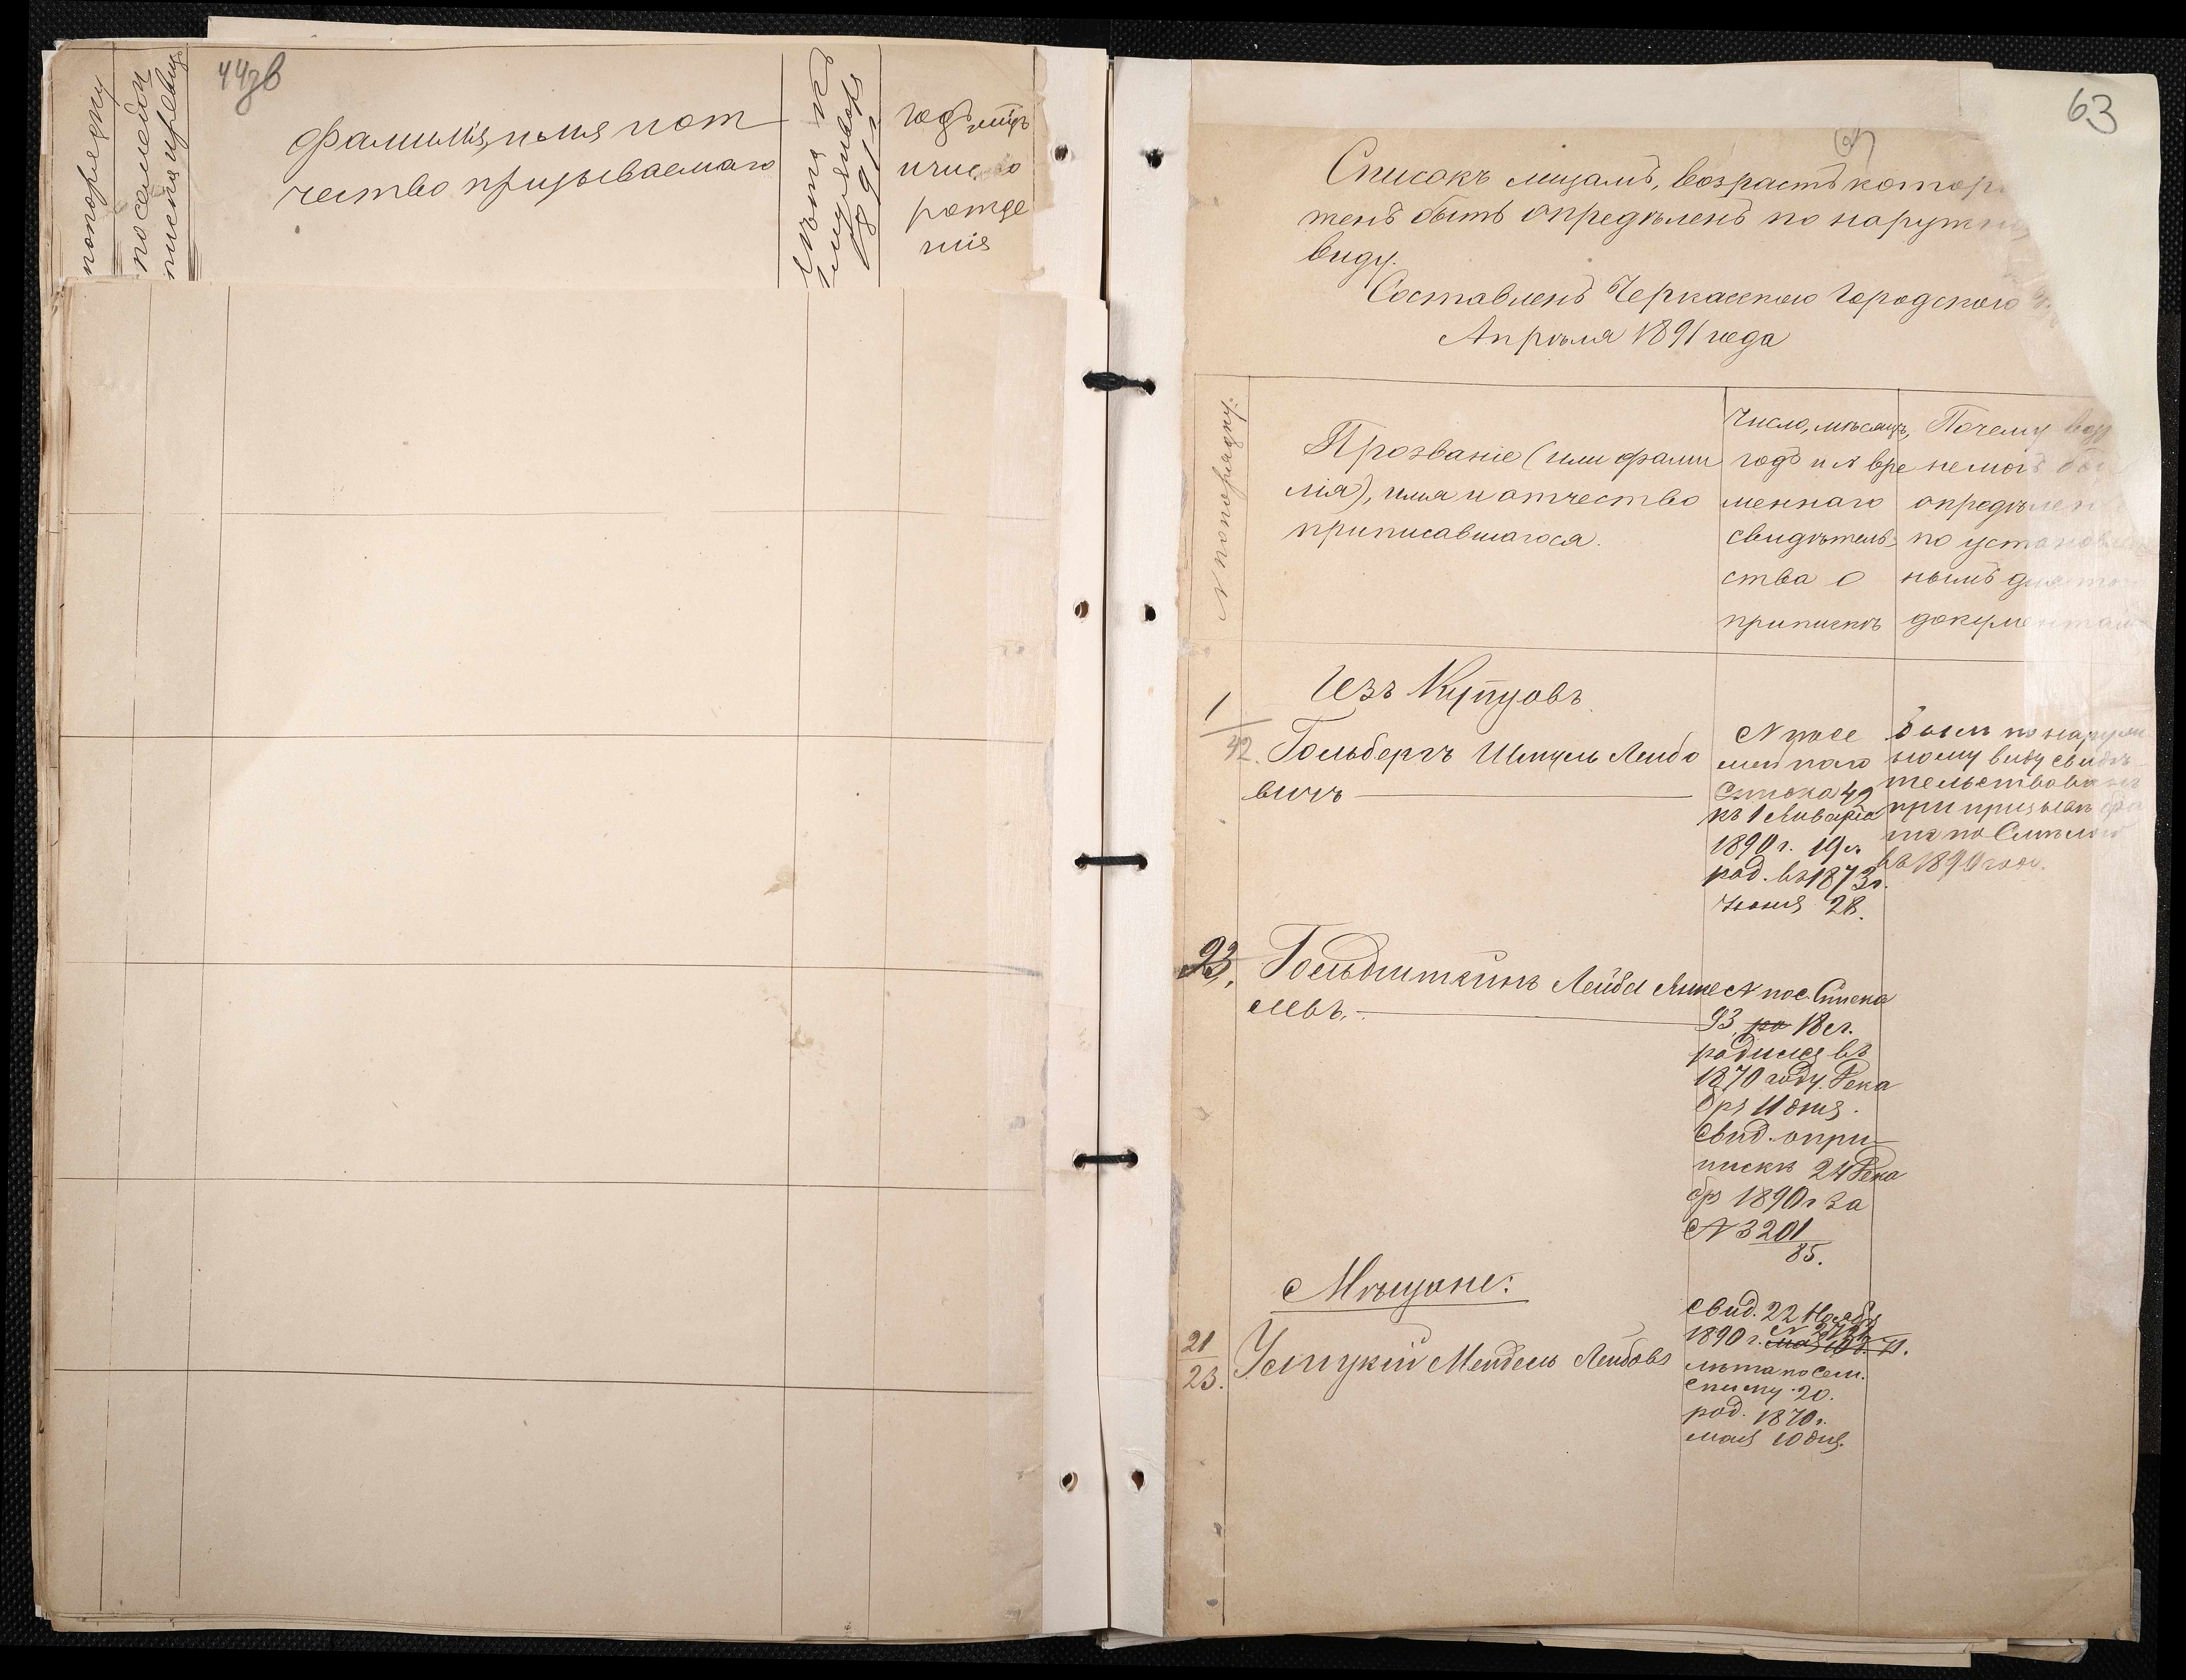 44зв
по порядку
по семейн
писка и ревиз
Фамилія, имя и от
чество призываемаго
Лѣта къ
1 му января
1891 г
годъ мѣсяцъ
и число
рожде
нія
63
Списокъ лицамъ, возрастъ котор
женъ быть опредѣленъ по наружн
виду.
Составленъ Черкасскою Городскою
Апрѣля 1891 года
№ по порядку.
Прозваніе (или фами
лія), имя и отчество
приписавшагося.
Число, мѣсяцъ,
годъ и № вре
меннаго
свидѣтель
ства о
припискѣ
Почему воз
не могъ бы
опредѣлен
по установлен
нымъ для то
документам
Изъ Купцовъ
1
42.
Гольбергъ Шмуль Лейбо
вичъ
№ посе
мейнаго
Списка 42
къ 1 Января
1890 г. 19 л.
род. въ 1873 г.
Іюня 28.
Былъ по наруж
ному виду свидѣ
тельствованъ
при призывѣ
въ 1890 году.
93.
Гольдштейнъ Лейба
левъ.
№ пос. Списка
93, ро 18 л.
родился въ
1870 году. Дека
бря 11 дня.
Свид. о при
пискѣ 24 Дека
бря 1890 г за
№ 3201
85.
Мѣщане:
21
23.
Услицкій Мендель Лейбовъ
Свид. 22 Ноябр
1890 г.
лѣта по сем.
списку 20.
род. 1870 г.
мая 10 дня.